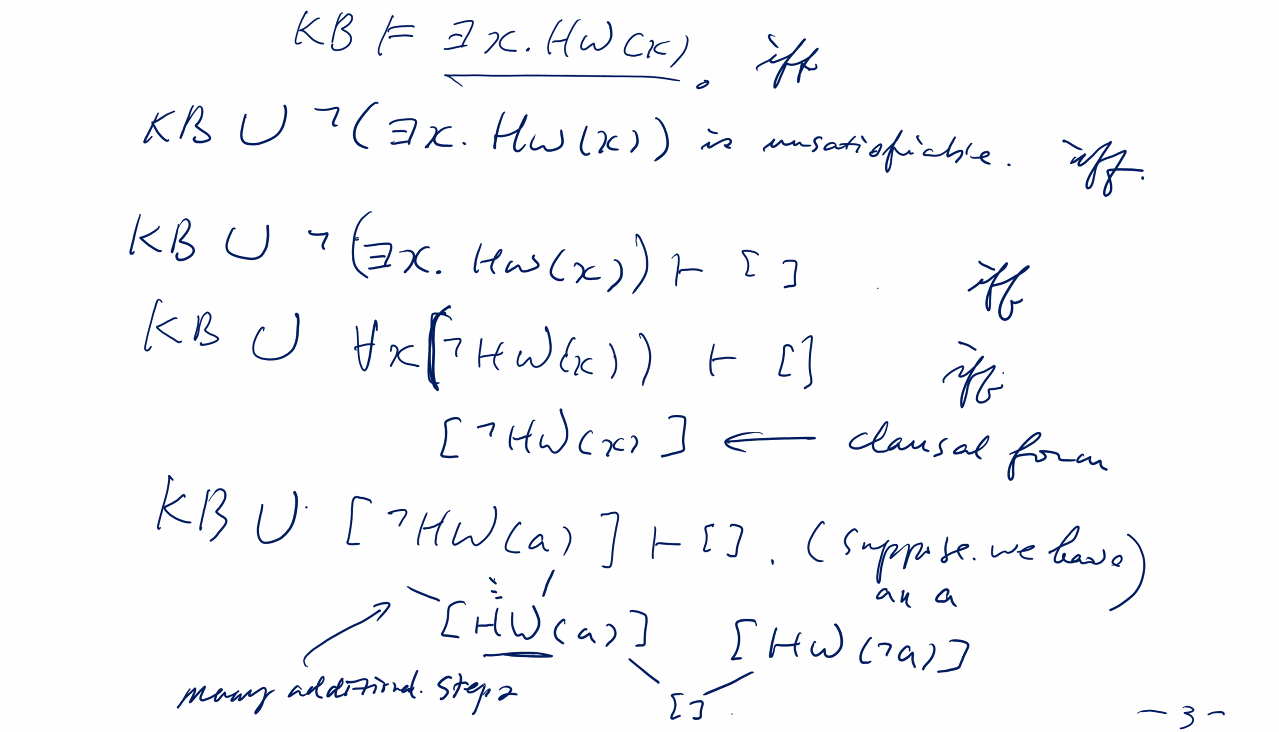 KB ⊨ ∃x.HW(x). iff
KB ∪ ¬(∃x. HW(x)) is unsatisfiable. iff.
KB ∪ ¬(∃x. HW(x)) ⊢ [ ] iff
KB ∪ ∀x(¬HW(x)) ⊢ [] iff
[¬HW(x)] ← clausal form
KB ∪ [¬HW(a)] ⊢ []. (suppose we have
an a)
[HW(a)] [HW(¬a)]
many additional steps
[]
-3-